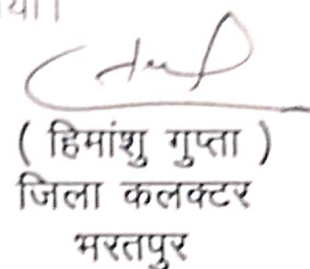 या।
( हिमांशु गुप्ता )
जिला कलक्टर
भरतपुर